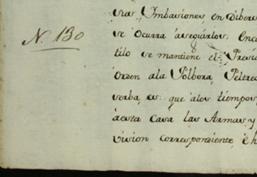 sras Imbasiones, en dibers
N. 130
se ocurra asegurarlos. Enca
tilo se mantiene el Presi
orden ala Polbora, Peltrec
serba, es que alos tiempos
acesta Casa las Armas y
vision correspondiente, è h